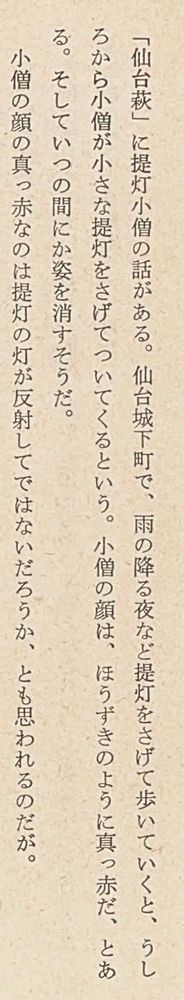 「仙台萩」に提灯小僧の話がある。仙台城下町で、雨の降る夜など提灯をさげて歩いていくと、うし
ろから小僧が小さな提灯をさげてついてくるという。小僧の顔は、ほうずきのように真っ赤だ、とあ
る。そしていつの間にか姿を消すそうだ。
小僧の顔の真っ赤なのは提灯の灯が反射してではないだろうか、とも思われるのだが。